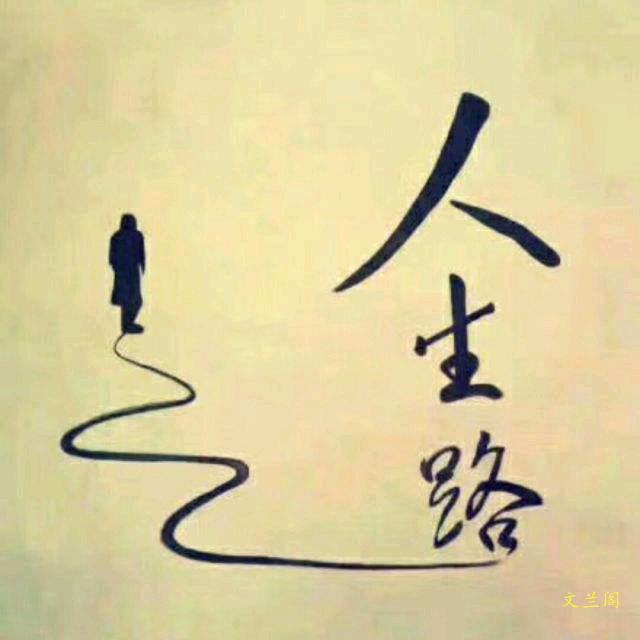 人生路
文兰阁